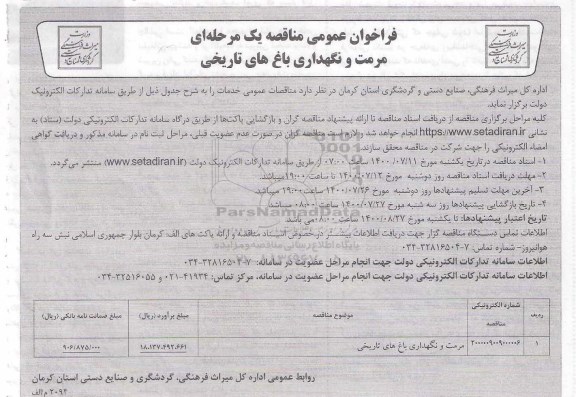 فراخوان عمومی مناقصه یک مرحله‌ای
مرمت و نگهداری باغ های تاریخی
اداره کل میراث فرهنگی، صنایع دستی و گردشگری استان کرمان در نظر دارد مناقصات عمومی خدمات را به شرح جدول ذیل از طریق سامانه تدارکات الکترونیک
دولت برگزار نماید.
کلیه مراحل برگزاری مناقصه از دریافت اسناد مناقصه تا ارائه پیشنهاد مناقصه گران و بازگشایی پاکت‌ها از طریق درگاه سامانه تدارکات الکترونیکی دولت (ستاد) به
نشانی https://www.setadiran.ir انجام خواهد شد و لازم است مناقصه گران در صورت عدم عضویت قبلی، مراحل ثبت نام در سامانه مذکور و دریافت گواهی
امضاء الکترونیکی را جهت شرکت در مناقصه محقق سازند.
۱- اسناد مناقصه درتاریخ یکشنبه مورخ ۱۴۰۰/۰۷/۱۱ ساعت ۰۷:۰۰ از طریق سامانه تدارکات الکترونیک دولت (www.setadiran.ir) منتشر می‌گردد.
۲- مهلت دریافت اسناد مناقصه روز دوشنبه مورخ ۱۴۰۰/۰۷/۱۲ تا ساعت ۱۹:۰۰ میباشد.
۳- آخرین مهلت تسلیم پیشنهادها روز دوشنبه مورخ ۱۴۰۰/۰۷/۲۶ ساعت ۱۹:۰۰ میباشد
۴- تاریخ بازگشایی پیشنهادها روز سه شنبه مورخ ۱۴۰۰/۰۷/۲۷ ساعت ۰۸:۰۰ میباشد.
تاریخ اعتبار پیشنهادها: تا یکشنبه مورخ ۱۴۰۰/۰۸/۲۷ ساعت ۰۸:۰۰ می باشد
اطلاعات تماس دستگاه مناقصه گزار جهت دریافت اطلاعات بیشتر در خصوص اسناد مناقصه و ارائه پاکت های الف: کرمان بلوار جمهوری اسلامی نبش سه راه
هوانیروز- شماره تماس: ۷-۰۳۴-۳۲۸۱۶۵۰۴
اطلاعات سامانه تدارکات الکترونیکی دولت جهت انجام مراحل عضویت در سامانه: ۷-۰۳۴-۳۲۸۱۶۵۰۴
اطلاعات سامانه تدارکات الکترونیکی دولت جهت انجام مراحل عضویت در سامانه، مرکز تماس: ۴۱۹۳۴-۰۲۱ و ۳۲۵۱۶۰۵۵-۰۳۴
ردیف شماره الکترونیکی مناقصه موضوع مناقصه مبلغ برآورد (ریال) مبلغ ضمانت نامه بانکی (ریال)
۱ ۲۰۰۰۰۰۹۰۰۹۰۰۰۰۰۶ مرمت و نگهداری باغ های تاریخی ۱۸,۱۳۷,۴۹۲,۶۶۱ ۹۰۶/۸۷۵/۰۰۰
روابط عمومی اداره کل میراث فرهنگی، گردشگری و صنایع دستی استان کرمان
۲۰۹۲ م الف
ParsNamadData
پایگاه اطلاع رسانی مناقصه و مزایده